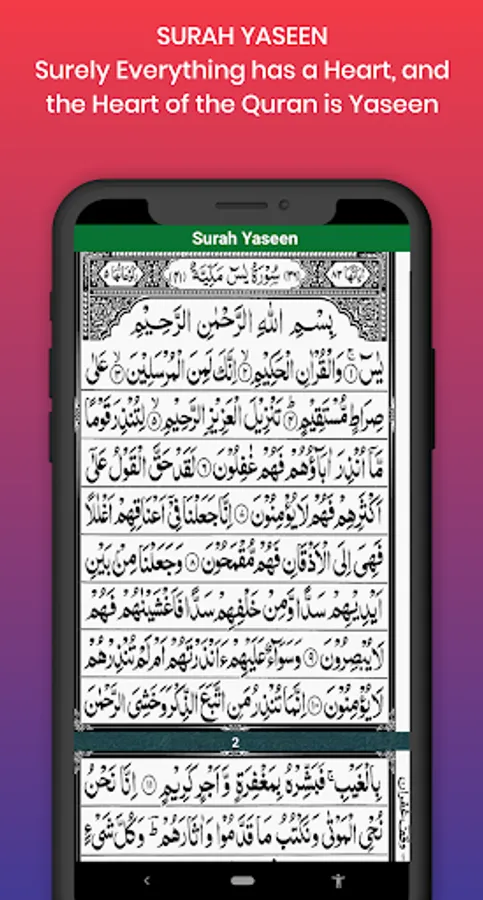 SURAH YASEEN
Surely Everything has a Heart, and
the Heart of the Quran is Yaseen
Surah Yaseen
اٰيَاتُهَا ٨٣ (٣٦) سُوْرَةُ يٰسٓ مَكِّيَّةٌ (٤١) رُكُوْعَاتُهَا ٥
بِسْمِ اللّٰهِ الرَّحْمٰنِ الرَّحِيْمِ
يٰسٓ ۚ﴿١﴾ وَالْقُرْاٰنِ الْحَكِيْمِ ۙ﴿٢﴾ اِنَّكَ لَمِنَ الْمُرْسَلِيْنَ ۙ﴿٣﴾ عَلٰى
صِرَاطٍ مُّسْتَقِيْمٍ ؕ﴿٤﴾ تَنْزِيْلَ الْعَزِيْزِ الرَّحِيْمِ ۙ﴿٥﴾ لِتُنْذِرَ قَوْمًا
مَّاۤ اُنْذِرَ اٰبَآؤُهُمْ فَهُمْ غٰفِلُوْنَ ﴿٦﴾ لَقَدْ حَقَّ الْقَوْلُ عَلٰۤى
اَكْثَرِهِمْ فَهُمْ لَا يُؤْمِنُوْنَ ﴿٧﴾ اِنَّا جَعَلْنَا فِيْۤ اَعْنَاقِهِمْ اَغْلٰلًا
فَهِىَ اِلَى الْاَذْقَانِ فَهُمْ مُّقْمَحُوْنَ ﴿٨﴾ وَجَعَلْنَا مِنْۢ بَيْنِ
اَيْدِيْهِمْ سَدًّا وَّمِنْ خَلْفِهِمْ سَدًّا فَاَغْشَيْنٰهُمْ فَهُمْ
لَا يُبْصِرُوْنَ ﴿٩﴾ وَسَوَآءٌ عَلَيْهِمْ ءَاَنْذَرْتَهُمْ اَمْ لَمْ تُنْذِرْهُمْ
لَا يُؤْمِنُوْنَ ﴿١٠﴾ اِنَّمَا تُنْذِرُ مَنِ اتَّبَعَ الذِّكْرَ وَخَشِىَ الرَّحْمٰنَ
2
بِالْغَيْبِ ۚ فَبَشِّرْهُ بِمَغْفِرَةٍ وَّاَجْرٍ كَرِيْمٍ ﴿١١﴾ اِنَّا نَحْنُ
نُحْىِ الْمَوْتٰى وَنَكْتُبُ مَا قَدَّمُوْا وَاٰثَارَهُمْ ؕ وَكُلَّ شَىْءٍ
وقف غفران